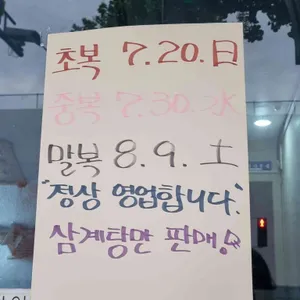 초복 7.20.日
중복 7.30.水
말복 8.9.土
"정상 영업합니다."
삼계탕만 판매!